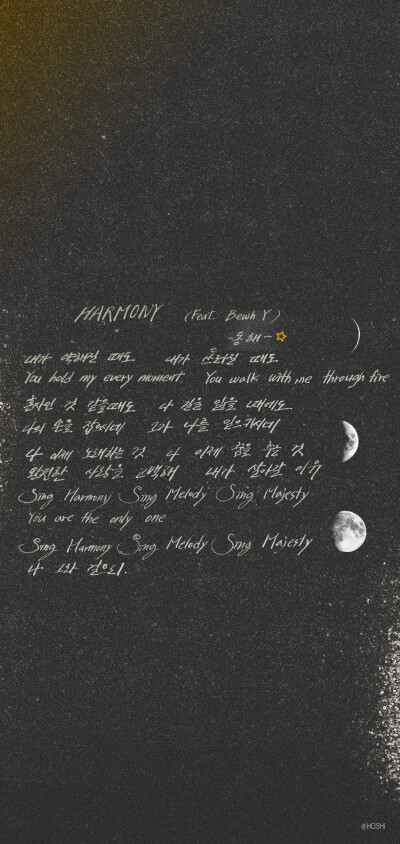 HARMONY (Feat. Bewh Y)
동해 -
내가 약해질 때도 내가 쓰러질 때도
You hold my every moment You walk with me through fire
혼자인 것 같을때도 나 길을 잃을 때에도
나의 손을 잡으시네 그가 나를 일으키시네
나 이제 노래하는 것 나 이제 꿈을 꾸는 것
완전한 사랑을 고백해 내가 살아갈 이유
Sing Harmony Sing Melody Sing Majesty
You are the only one
Sing Harmony Sing Melody Sing Majesty
나 너와 걸으리.
@HOSHI